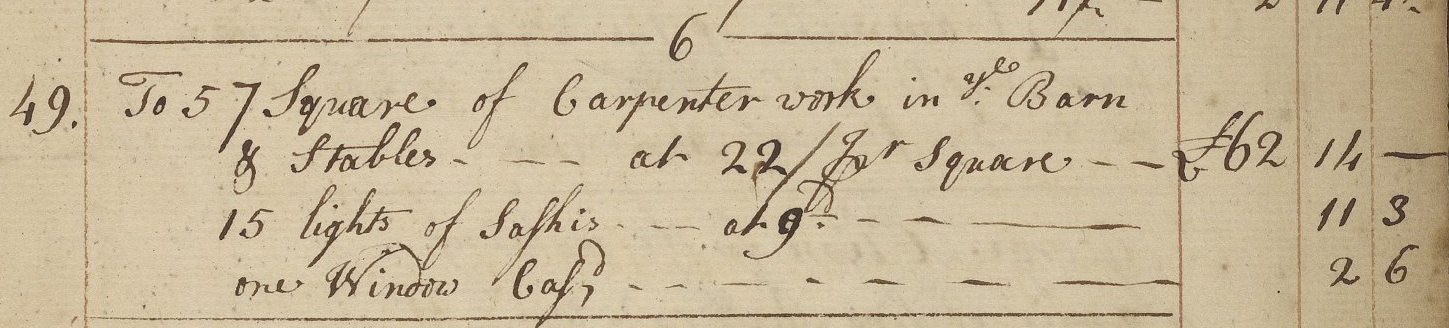 6
49. To 57 Square of Carpenter work in yᵉ. Barn
& Stables - - - - at 22/ Pr Square - - £62 14 —
15 lights of Sashis - - - at 9ᵈ. - - - 11 3
one Window - - - - - - 2 6